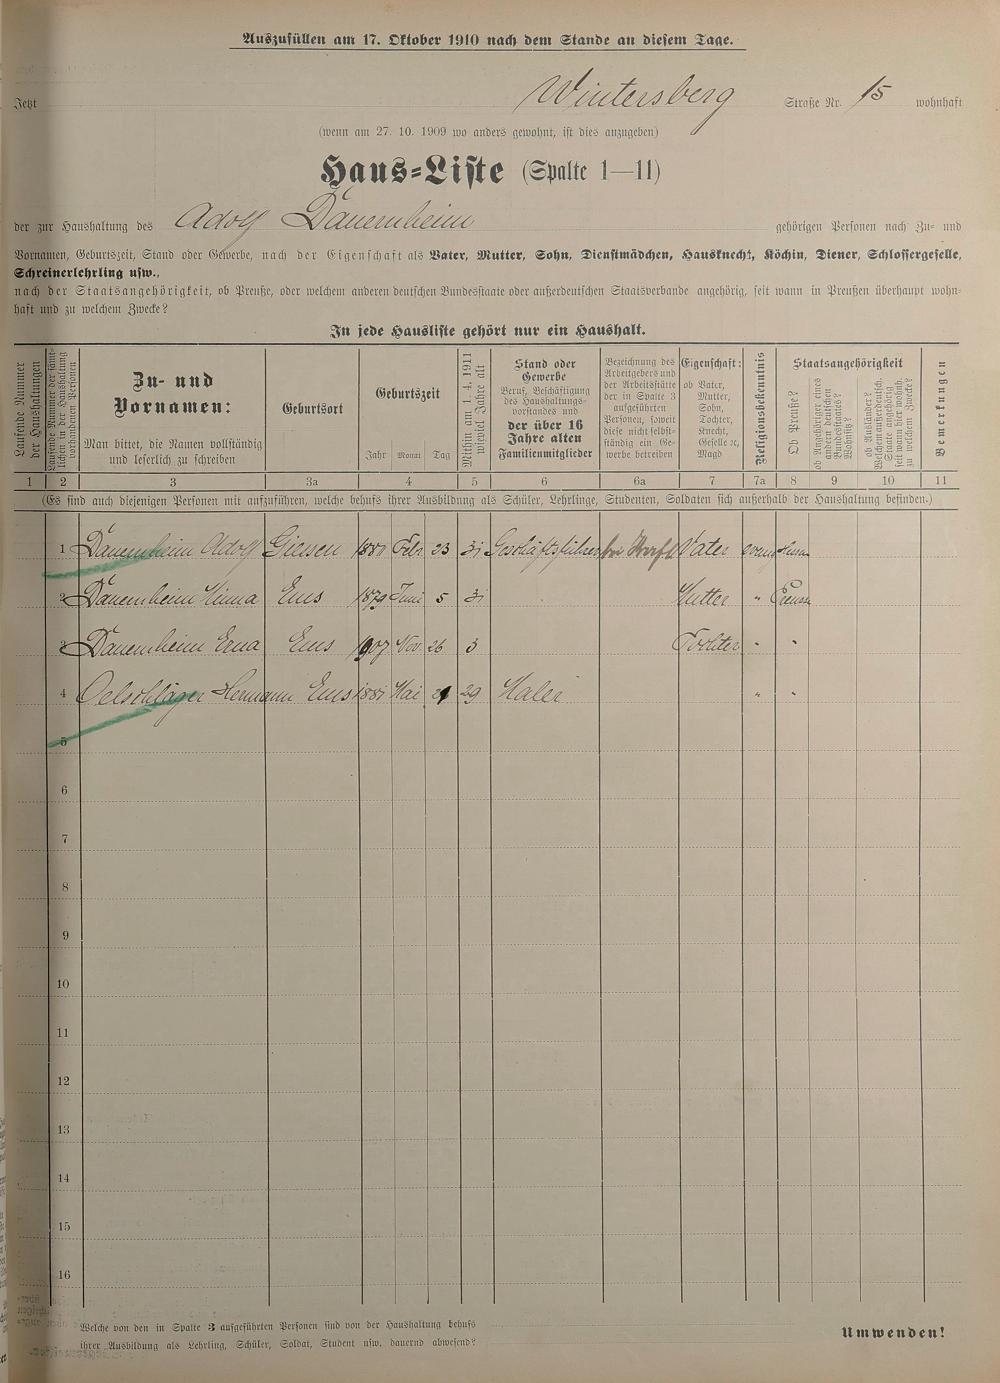 Auszufüllen am 17. Oktober 1910 nach dem Stande an diesem Tage.
Jetzt Wintersberg Straße Nr. 15 wohnhaft
(wenn am 27. 10. 1909 wo anders gewohnt, ist dies anzugeben)
Haus-Liste (Spalte 1—11)
der zur Haushaltung des Adolf Dauernheim gehörigen Personen nach Zu- und
Vornamen, Geburtszeit, Stand oder Gewerbe, nach der Eigenschaft als Vater, Mutter, Sohn, Dienstmädchen, Hausknecht, Köchin, Diener, Schlossergeselle,
Schreinerlehrling usw.,
nach der Staatsangehörigkeit, ob Preuße, oder welchem anderen deutschen Bundesstaate oder außerdeutschen Staatsverbande angehörig, seit wann in Preußen überhaupt wohn-
haft und zu welchem Zwecke?
In jede Hausliste gehört nur ein Haushalt.
Laufende Nummer
der Haushaltungen
Laufende Nummer der sämt-
lichen in der Haushaltung
vorhandenen Personen
Zu- und
Vornamen:
Man bittet, die Namen vollständig
und leserlich zu schreiben
Geburtsort
Geburtszeit
Jahr Monat Tag
Mithin am 1. 4. 1911
wieviel Jahre alt
Stand oder
Gewerbe
Beruf, Beschäftigung
des Haushaltungs-
vorstandes und
der über 16
Jahre alten
Familienmitglieder
Bezeichnung des
Arbeitgebers und
der Arbeitsstätte
der in Spalte 3
aufgeführten
Personen, soweit
diese nicht selbst-
ständig ein Ge-
werbe betreiben
Eigenschaft:
ob Vater,
Mutter,
Sohn,
Tochter,
Knecht,
Geselle ꝛc,
Magd
Religionsbekenntnis
Staatsangehörigkeit
Ob Preuße?
ob Angehöriger eines
andern deutschen
Bundesstaates?
Wohnsitz?
ob Ausländer?
Welchem außerdeutsch.
Staate angehörig
seit wann hier wohnh.
zu welchem Zwecke?
Bemerkungen
1 2 3 3a 4 5 6 6a 7 7a 8 9 10 11
(Es sind auch diejenigen Personen mit aufzuführen, welche behufs ihrer Ausbildung als Schüler, Lehrlinge, Studenten, Soldaten sich außerhalb der Haushaltung befinden.)
1 Dauernheim Adolf Giessen 1880 Febr 23 31 Geschäftsführer bei Vater evang
2 Dauernheim Minna Ems 1879 Juni 5 31 Mutter " Preusse
3 Dauernheim Erna Ems 1907 Nov. 26 3 Tochter " "
4 Oelschläger Hermann Ems 1881 Mai 29 Maler " "
5
6
7
8
9
10
11
12
13
14
15
16
Welche von den in Spalte 3 aufgeführten Personen sind von der Haushaltung behufs
ihrer Ausbildung als Lehrling, Schüler, Soldat, Student usw. dauernd abwesend?
Umwenden!